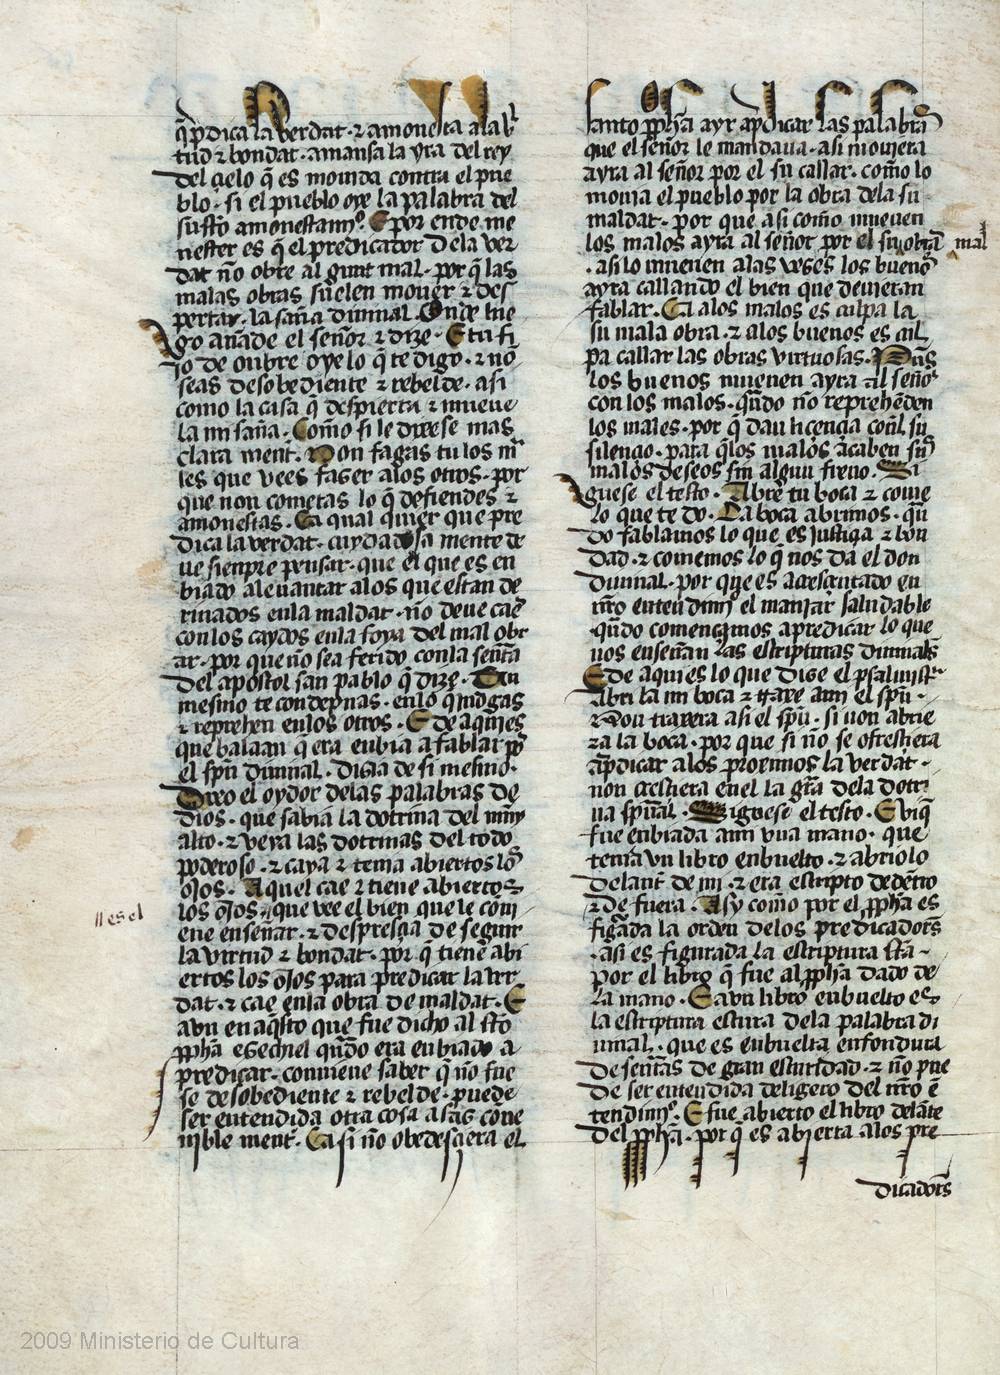 q̃ p̃dica la verdat · ⁊ amonesta a la vir
tud ⁊ bondat · amansa la yra del rey
del çielo q̃ es mouida contra el pue
blo · si el pueblo oye la palabra del
su sc̃to amonestam̃º · E por ende me
nester es q̃ el predicador dela ver
dat ño obre al gunt mal · por q̃ las
malas obras suelen mouer ⁊ des
pertar · la saña diuinal · Onde lue
go añade el señor ⁊ dize · E tu fi
jo de onbre oye lo q̃ te digo · ⁊ no
seas desobediente ⁊ rebelde · asi
como la casa q̃ despierta ⁊ mueue
la mi saña · Como si le dixese mas
clara ment · Non fagas tu los ma
les que vees fazer a los otros · por
que non cometas lo q̃ defiendes ⁊
amonestas · Ca qual quier que pre
dica la verdat · cuydadosa mente de
ue sienpre pensar · que el que es en
biado a leuantar a los que estan de
riuados en la maldat · ño deue caer
con los caydos en la foya del mal obr
ar · por que ño sea ferido con la señt̃a
del apostol san pablo q̃ dize · Tu
mesmo te condepnas · en lo q̃ judgas
⁊ reprehen en los otros · E de aqui es
que balaan q̃ era enbiado a fablar por
el sp̃u diuinal · dizia de si mesmo ·
Dixo el oydor delas palabras de
dios · que sabia la dotrina del muy
alto · ⁊ veya las dotrinas del todo
poderoso · ⁊ caya ⁊ tenia abiertos los
ojos · Aquel cae ⁊ tiene abiertos
los ojos // que vee el bien que le conui
ene enseñar · ⁊ despreçia de seguir
la virtud ⁊ bondat · por q̃ tiene abi
ertos los ojos para predicar la ver
dat · ⁊ cae en la obra de maldat · E
avn en aq̃sto que fue dicho al sc̃to
p̃pheta ezechiel quãdo era enbiado a
predicar · conuiene saber q̃ no fue
se desobediente ⁊ rebelde · puede
ser entendida otra cosa asaz coue
nible ment · Ca si ño obedesçiera el
// es el
santo p̃pheta a yr a p̃dicar las palabras
que el señor le mandaua · asi mouiera
a yra al señor por el su callar · como lo
mouia el pueblo por la obra dela su
maldat · por que asi como mueuen
los malos a yra al señor por el su obra
mal
· asi lo mueuen a las vezes los buenos
a yra callando el bien que deuieran
fablar · Ca a los malos es culpa la
su mala obra · ⁊ a los buenos es cul
pa callar las obras virtuosas · Pues
los buenos mueuen a yra al señor
con los malos · quãdo ño reprehenden
los males · por q̃ dan licençia con el su
silençio · para q̃ los malos acaben sus
malos deseos sin algun freno · Si
guese el testo · Abre tu boca ⁊ come
lo que te do · La boca abrimos · quã
do fablamos lo que es justiçia ⁊ bon
dad · ⁊ comemos lo q̃ nos da el don
diuinal · por que es acresçentado en
nr̃o entendimº el manjar saludable
· quãdo començamos a predicar lo que
nos enseñan las escripturas diuinales
E de aqui es lo que dize el psalmista ·
Abri la mi boca ⁊ traxe a mi el sp̃u ·
⁊ non traxera asi el sp̃u · si non abrie
ra la boca · por que si ño se ofresçiera
a p̃dicar a los proximos la verdat ·
non cresçiera en el la gr̃a dela dotri
na sp̃ual · Siguese el testo · E vi q̃
fue enbiada a mi vna mano · que
tenia vn libro enbuelto · ⁊ abriolo
delant de mi · ⁊ era escripto de dentro
⁊ de fuera · Asy como por el p̃pheta es
figurada la orden delos predicadores
· asi es figurada la escriptura sc̃ta ·
por el libro q̃ fue al p̃pheta dado de
la mano · E avn libro enbuelto es
la escriptura escura dela palabra di
uinal · que es enbuelta en fondura
de señt̃as de gran escuridad · ⁊ ño pue
de ser entendida de ligero del nr̃o en
tendimº · E fue abierto el libro delante
del p̃pheta · por q̃ es abierta a los pre
dicadores
2009 Ministerio de Cultura